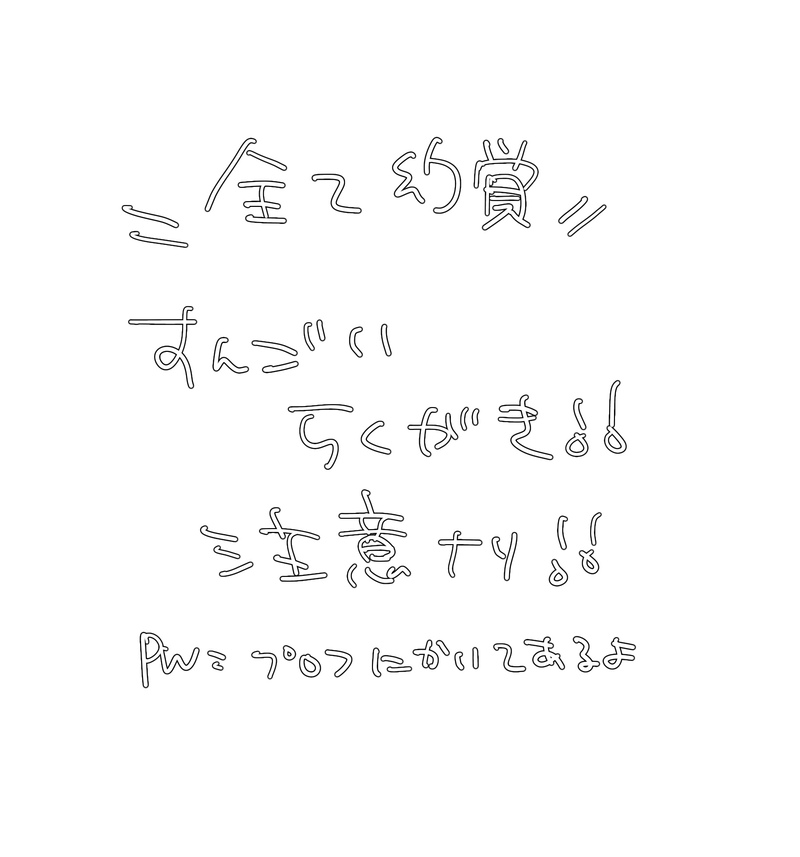 全て幻覚
すんごい
らくがき!!
注意ナリ!!
PW:プロフにかいてあるよ